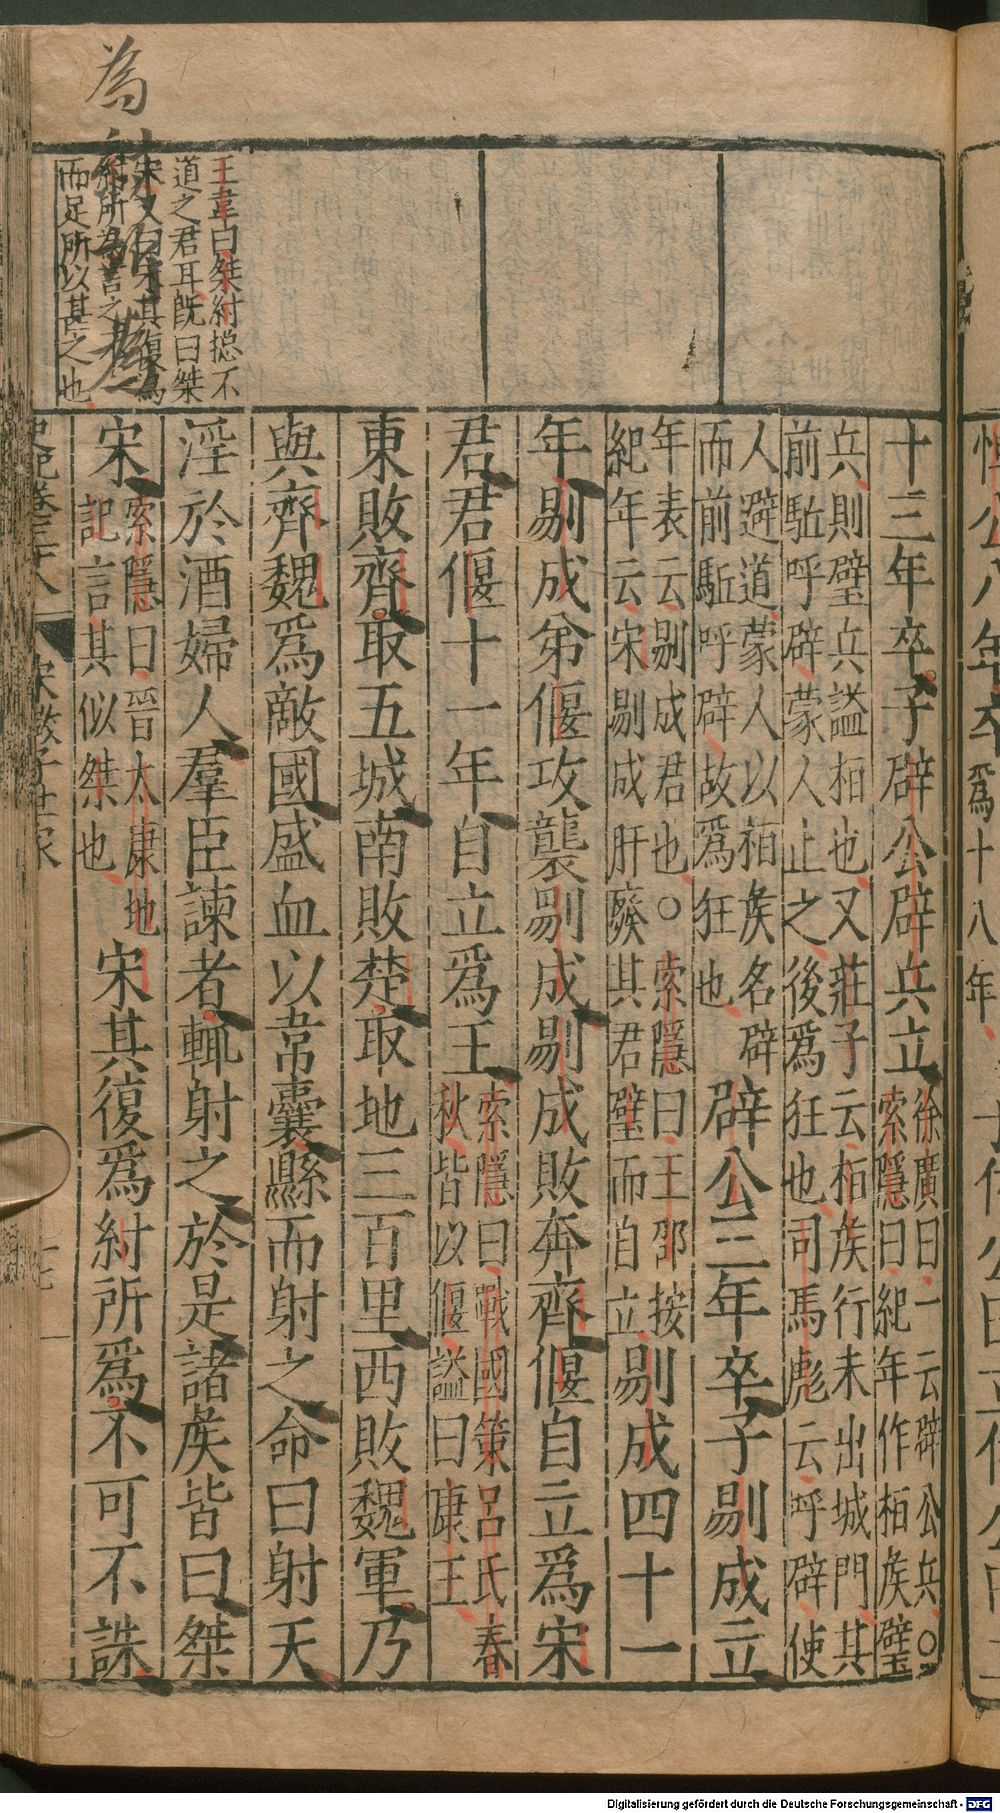 八年卒爲十八年
王韋曰桀紂揔不
道之君耳旣曰桀
宋又曰宋其復爲
紂所爲言之
而足所以甚之也
為
十三年卒子辟公辟兵立
徐廣曰一云辟公兵○
索隱曰紀年作栢侯璧
兵則璧兵謚栢也又莊子云栢侯行未出城門其
前駈呼辟蒙人止之後爲狂也司馬彪云呼辟使
人避道蒙人以栢侯名辟
而前駈呼辟故爲狂也
辟公三年卒子剔成立
年表云剔成君也○索隱曰王邵按
紀年云宋剔成肝廢其君璧而自立
剔成四十一
年剔成弟偃攻襲剔成剔成敗奔齊偃自立爲宋
君君偃十一年自立爲王
索隱曰戰國策呂氏春
秋皆以偃謚曰康王
東敗齊取五城南敗楚取地三百里西敗魏軍乃
與齊魏爲敵國盛血以韋囊縣而射之命曰射天
淫於酒婦人羣臣諫者輒射之於是諸侯皆曰桀
宋
索隱曰晉太康地
記言其似桀也
宋其復爲紂所爲不可不誅
史記卷三十八 宋微子世家 十七
Digitalisierung gefördert durch die Deutsche Forschungsgemeinschaft - DFG